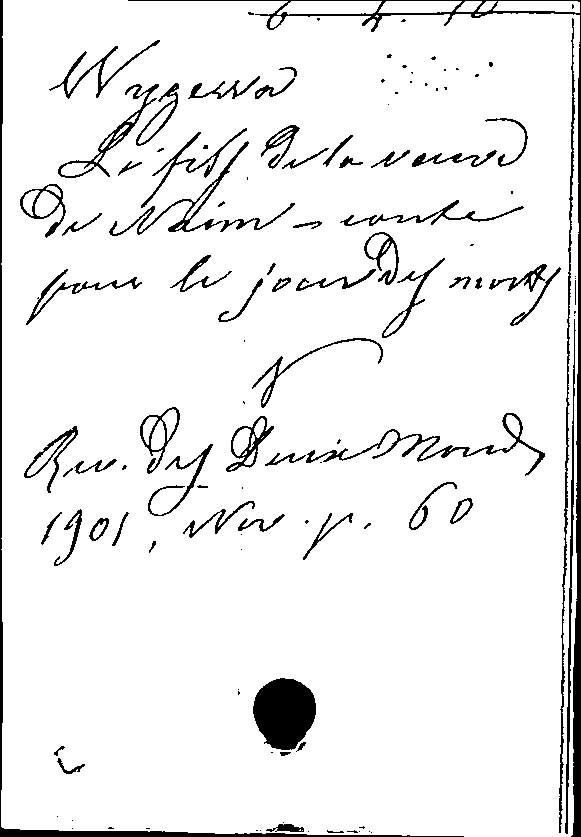 6. 4. 10
Wyzewa
Le fils de la veuve
de Naïm – conte
pour le jour des morts
Rev. des Deux Mondes
1901, Nov. p. 60